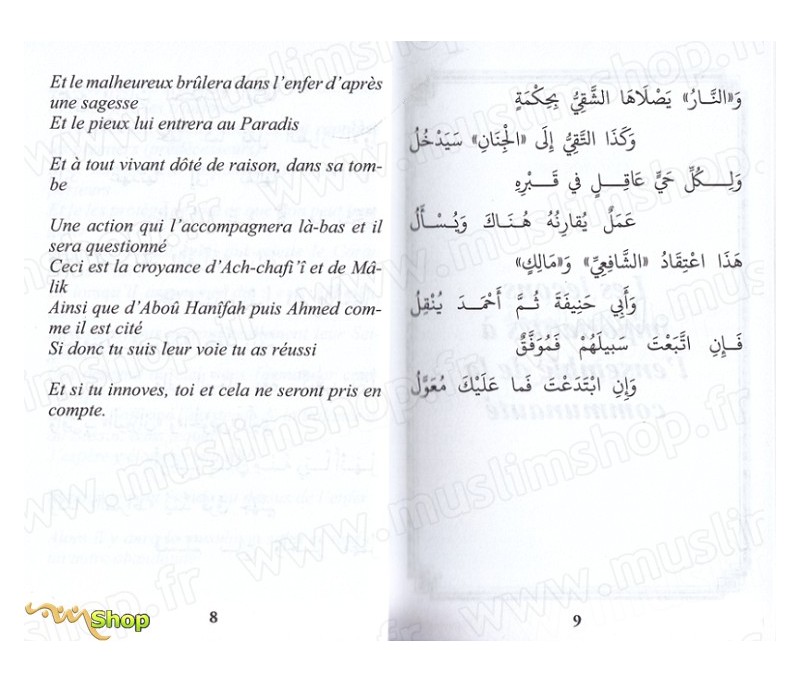 Et le malheureux brûlera dans l'enfer d'après
une sagesse
Et le pieux lui entrera au Paradis
Et à tout vivant dôté de raison, dans sa tom-
be
Une action qui l'accompagnera là-bas et il
sera questionné
Ceci est la croyance d'Ach-chafi'î et de Mâ-
lik
Ainsi que d'Aboû Hanîfah puis Ahmed com-
me il est cité
Si donc tu suis leur voie tu as réussi
Et si tu innoves, toi et cela ne seront pris en
compte.
8
Shop
وَ«النَّارُ» يَصْلَاهَا الشَّقِيُّ بِحِكْمَةٍ
وَكَذَا التَّقِيُّ إِلَى «الْجِنَانِ» سَيَدْخُلُ
وَلِـكُلِّ حَيٍّ عَاقِـلٍ في قَـبْرِهِ
عَمَلٌ يُقارِنُهُ هُنَـاكَ وَيُسْـأَلُ
هَذَا اعْتِقَادُ «الشَّافِعِيِّ» وَ«مَالِكٍ»
وَأَبِي حَنِيفَةَ ثُـمَّ أَحْمَـدَ يُنْقِلُ
فَـإِنِ اتَّبَعْتَ سَبِيلَهُمْ فَمُوَفَّقٌ
وَإِنِ ابْتَدَعْتَ فَما عَلَيْكَ مُعَوَّلُ
9
www.muslimshop.fr